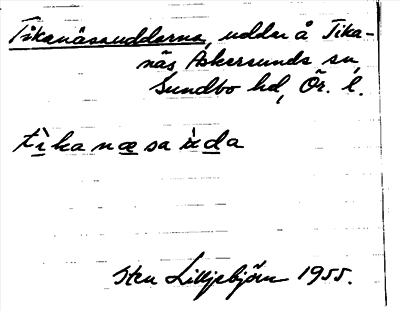 Tikanäsauddarna, uddar å Tika-
näs Askersunds sn,
Sundbo hd, Ör. l.
tìkanæsaùda
Sten Lilljebjörn 1955.